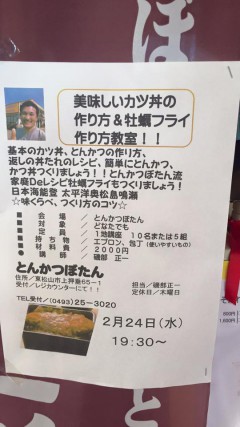 美味しいカツ丼の
作り方&牡蠣フライ
作り方教室!!
基本のカツ丼、とんかつの作り方、
返しの丼たれのレシピ、簡単にとんかつ、
かつ丼つくりましょう!!とんかつぼたん流
家庭Deレシピ牡蠣フライもつくりましょう!
日本海能登 太平洋奥松島鳴瀬
☆味くらべ、つくり方のコツ☆
■ 会場 / とんかつぼたん
■ 対象 / どなたでも
■ 定員 / 1地講座 10名または5組
■ 持ち物 / エプロン、包丁(使いやすいもの)
■ 材料費 / 2000円
● 講師 / 磯部 正一
とんかつぼたん
住所/東松山市上押垂65-1
受付/レジカウンターにて!!
担当/磯部正一
定休日/木曜日
TEL受付/(0493)25-3020
2月24日(水)
19:30~
ぼ
と